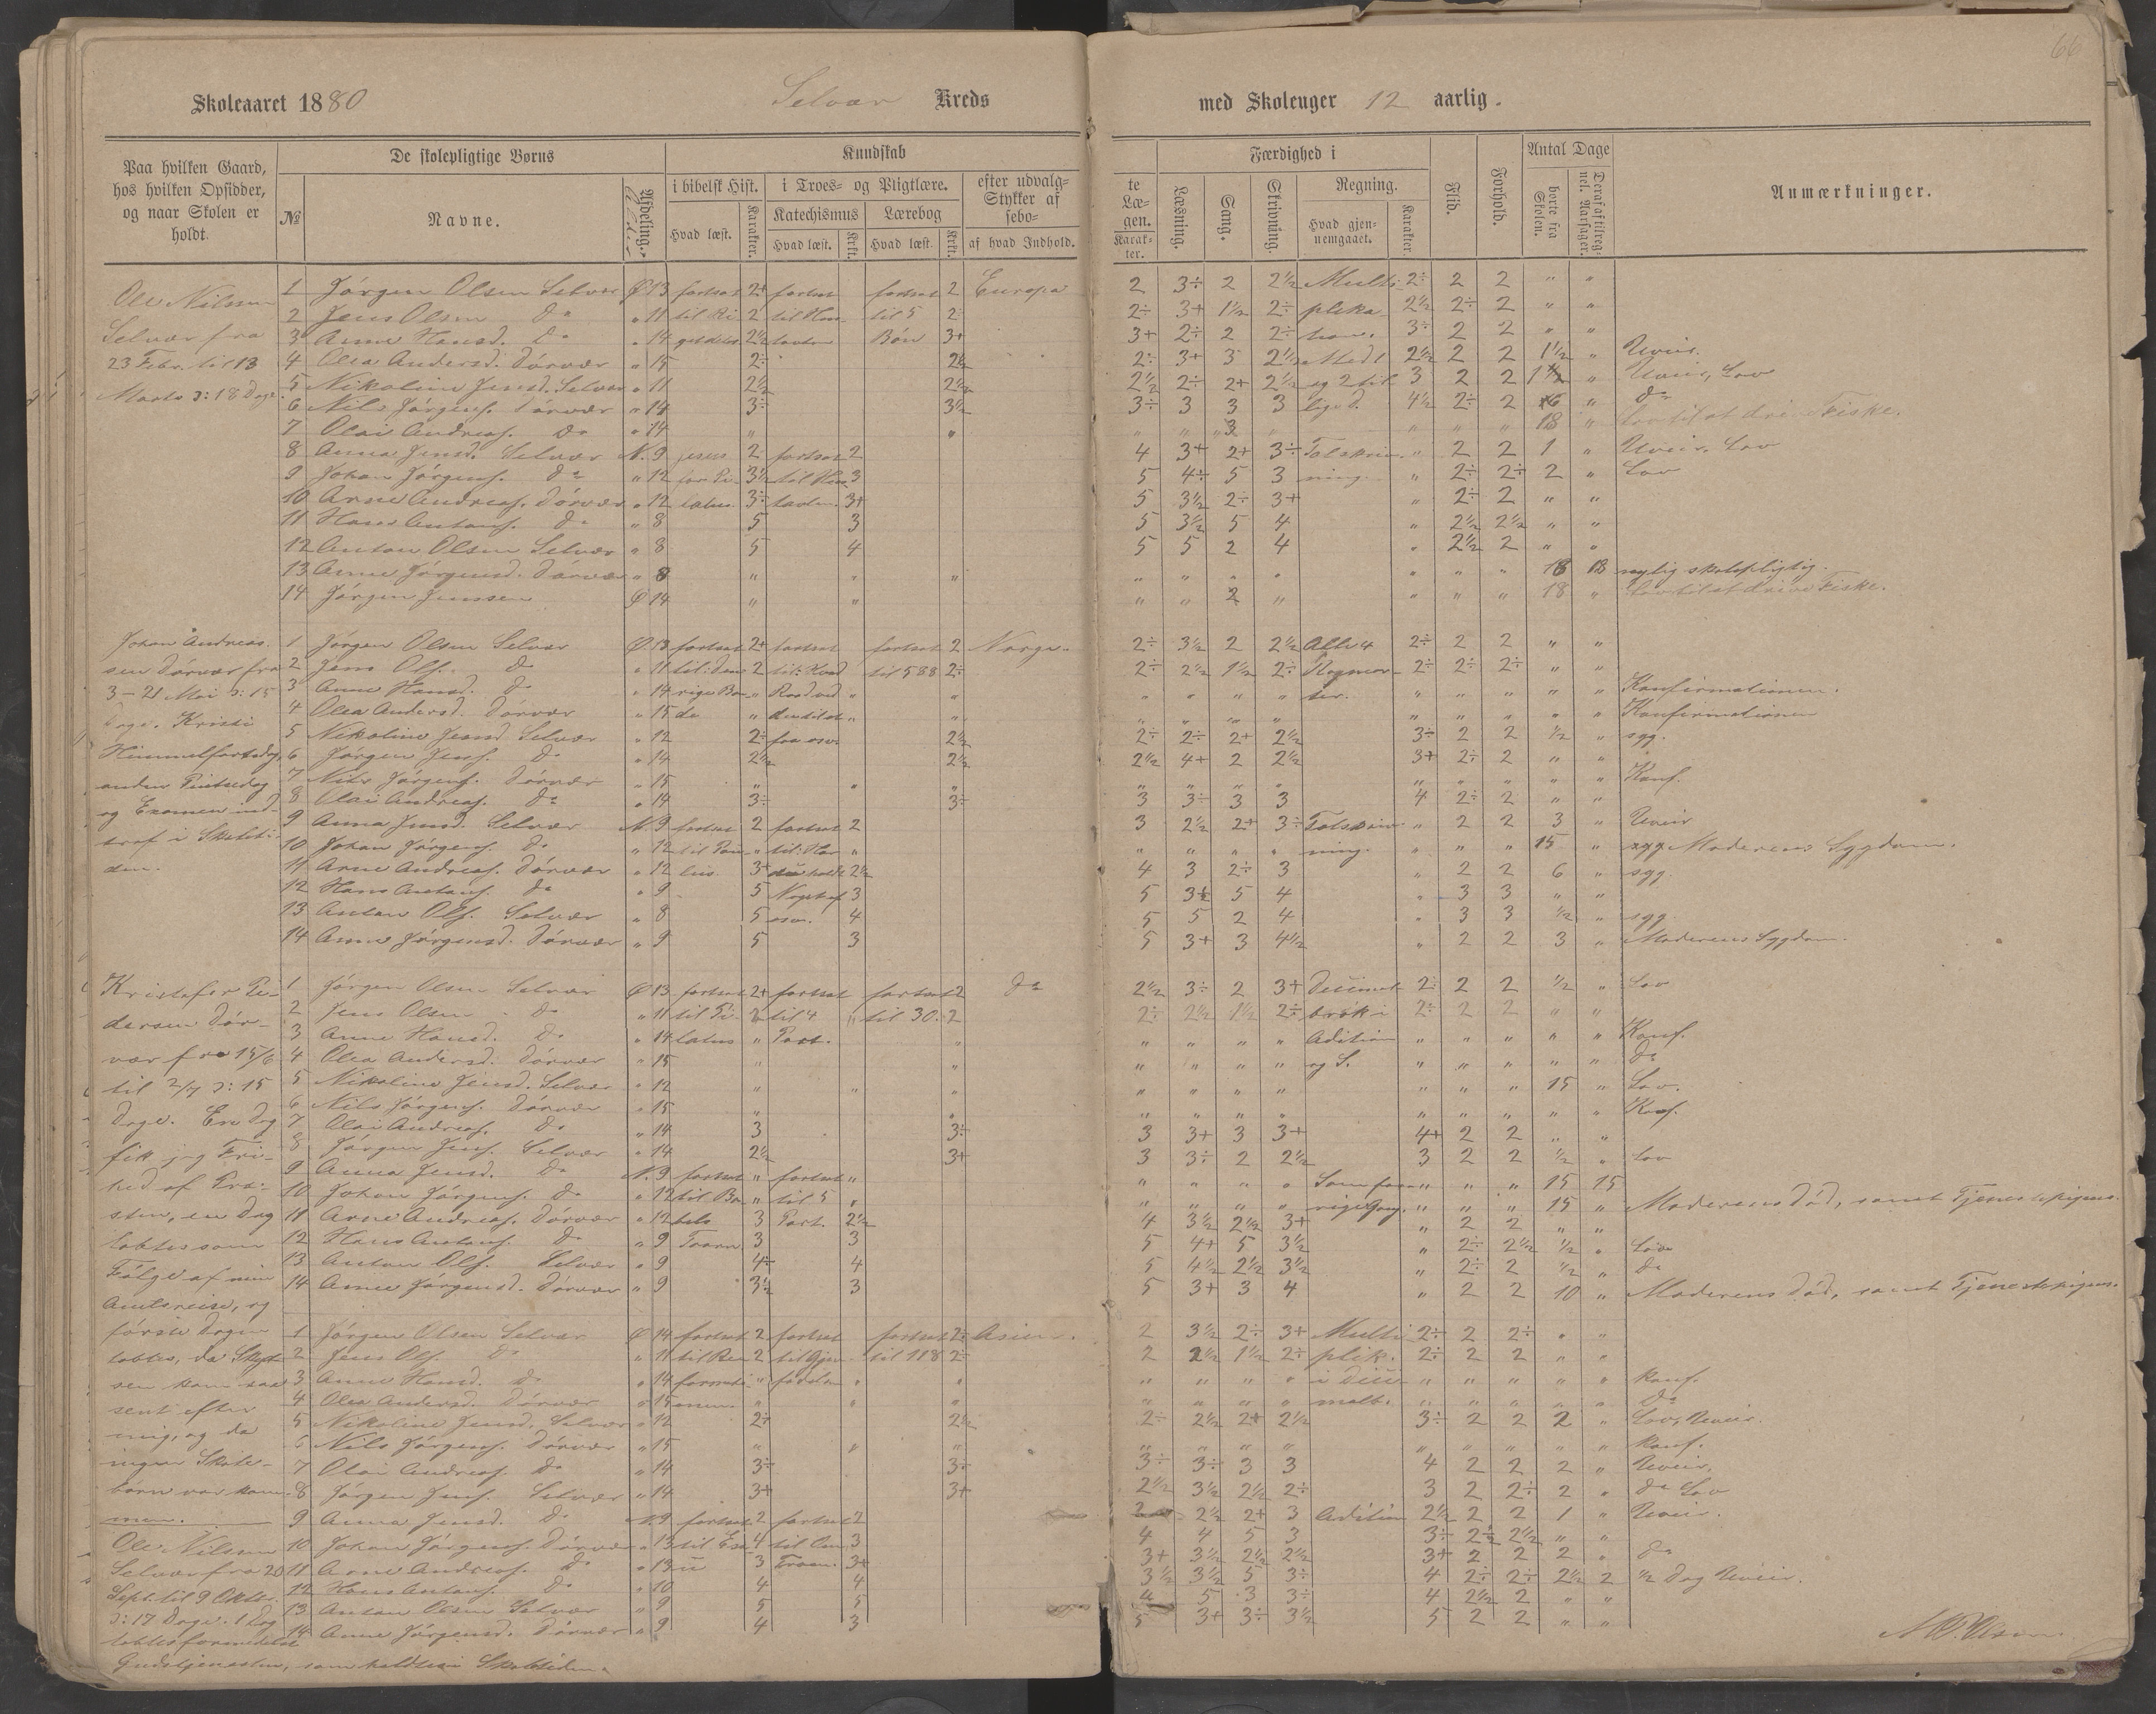 66
Skoleaaret 1880 Selvær Kreds med Skoleuger 12 aarlig.
Paa hvilken Gaard, hos hvilken Opsidder, og naar Skolen er holdt.
De skolepligtige Børns
№ Navne. Afdeling. Alder
Kundskab
i bibelsk Hist. i Troes- og Pligtlære. efter udvalgte Stykker af Læsebogen.
Hvad læst. Karakter. Katechismus Hvad læst. Krkt. Lærebog Hvad læst. Krkt. af hvad Indhold. Karakter.
Færdighed i
Læsning. Sang. Skrivning. Regning. Hvad gjennemgaaet. Karakter.
Flid. Forhold. Antal Dage borte fra Skolen. Deraf af tilregnel. Aarsager. Anmærkninger.
Ole Nilssen
Selvær fra
23 Febr. til 13
Marts ɔ: 18 Dage.
1 Jörgen Olsen Selvær Ø 13 fortsat 2+ fortsat fortsat 2 Europa 2 3÷ 2 2½ Multi- 2÷ 2 2 " "
2 Jens Olsen do " 11 2 til 5 2÷ 2÷ 3+ 1½ 2÷ plika- 2½ 2÷ 2 " "
3 Anne Hansd. do " 14 2½ Bön 3+ 3+ 2÷ 2 2÷ 3÷ 2 2 " "
4 Olea Andersd. Dörvær " 15 2÷ 2½ 2÷ 3+ 3 2½ Med 1 2½ 2 2 1½ " Uveir.
5 Nikoline Jensd. Selvær " 11 2½ 2½ 2½ 2÷ 2+ 2½ og 2 til 3 2 2 " Uveir, Lov
6 Nils Jörgens. Dörvær " 14 3÷ 3½ 3÷ 3 3 3 4½ 2÷ 2 6 " do
7 Olai Andreas. do " 14 " " 3 18 " Lov til at drive Fiske.
8 Anna Jensd. Selvær N. 9 Jesus 2 fortsat 2 4 3+ 2+ 3÷ Talskriv- " 2 2 1 " Uveir, Lov
9 Johan Jörgens. do " 12 3½ 3 5 4÷ 5 3 ning " 2÷ 2÷ 2 " Lov
10 Arne Andreas. Dörvær " 12 latus 3÷ tavlen 3+ 5 3½ 2÷ 3+ " 2÷ 2 " "
11 Hans Antons. do " 8 5 3 5 3½ 5 4 " 2½ 2½ " "
12 Anton Olsen Selvær " 8 5 4 5 5 2 4 " 2½ 2 " "
13 Anne Jörgensd. Dörvær " 8 " " " " " " " " " " 18 18 nylig skolepligtig.
14 Jörgen Jenssen Ø 14 " " " " 2 " " " " 18 " Lov til at drive Fiske.
Johan Andreas-
sen Dörvær fra
3 - 21 Mai ɔ: 15
Dage. Kristi
Himmelfartsdag,
anden Pintsedag
og Examen ind-
traf i Skoleti-
den.
1 Jörgen Olsen Selvær Ø 13 fortsat 2+ fortsat fortsat 2 Norge. 2÷ 3½ 2 2½ Alle 4 2÷ 2 2 " "
2 Jens Ols. do " 11 2 til 588 2÷ 2÷ 2½ 1½ 2÷ Regnear- 2÷ 2÷ 2÷ " "
3 Anne Hansd. do " 14 " " " " " " " ter. " " " " " Konfirmationen.
4 Olea Andersd. Dörvær " 15 " " " " " " " " " " " " Konfirmationen
5 Nikoline Jensd Selvær " 12 2÷ 2½ 2÷ 2÷ 2+ 2½ 3÷ 2 2 ½ " syg.
6 Jörgen Jens. do " 14 2½ 2½ 2½ 4+ 2 2½ 3+ 2÷ 2 " "
7 Nils Jörgens. Dörvær " 15 " " " " " " " " " " " " Konf.
8 Olai Andreas. do " 14 3÷ 3÷ 3 3÷ 3 3 4 2÷ 2 " "
9 Anna Jensd. Selvær N. 9 fortsat 2 fortsat 2 3 2½ 2+ 3÷ Talskriv- " 2 2 3 " Uveir
10 Johan Jörgens. do " 12 " " " " " " ning. " " " 15 " Moderens Sygdom.
11 Arne Andreas. Dörvær " 12 3+ 2½ 4 3 2÷ 3 " 2 2 6 " syg.
12 Hans Antons. do " 9 5 3 5 3+ 5 4 " 3 3 " "
13 Anton Ols. Selvær " 8 5 osv. 4 5 5 2 4 " 3 3 ½ " syg
14 Anne Jörgensd. Dörvær " 9 5 3 5 3+ 3 4½ " 2 2 3 " Moderens Sygdom.
Kristofer Pe-
dersen Dör-
vær fra 15/6
til 2/7 ɔ: 15
Dage. En Dag
fik jeg Fri-
hed af Præ-
sten, en Dag
tabtes som
Fölge af min
Amtsreise, og
förste Dagen
tabtes, da Skyd-
sen kom saa
sent efter
mig, og da
ingen Skole-
börn var kom-
men.
1 Jörgen Olsen Selvær Ø 13 fortsat 2+ fortsat fortsat 2 do 2½ 3÷ 2 3+ Decimal- 2÷ 2 2 ½ " Lov
2 Jens Olsen do " 11 til Pi- 2 til 4 til 30. 2 2÷ 2½ 1½ 2÷ brök i 2÷ 2 2 " "
3 Anne Hansd. do " 14 latus " Part. " " " " " Adition " " " " " Konf.
4 Olea Andersd. Dörvær " 15 " " " " " " og S. " " " " " do
5 Nikoline Jensd. Selvær " 12 " " " " " " " " " " 15 " Lov.
6 Nils Jörgens. Dörvær " 15 " " " " " " " " " " " Konf.
7 Olai Andreas. do " 14 3 3÷ 3 3+ 3 3+ 4+ 2 2 " "
8 Jörgen Jens. Selvær " 14 2½ 3+ 3 3÷ 2 2½ 3 2 2 ½ " Lov
9 Anna Jensd. do N. 9 fortsat " fortsat " " " " " Som for- " " " 15 15
10 Johan Jörgens. do " 12 " til 5 " " " " " rige Gang. " " " 15 " Moderens Död, samt Tjenestepigens.
11 Arne Andreas. Dörvær " 12 3 Part. 2½ 4 3½ 2½ 3+ " 2 2 " "
12 Hans Antons. do " 9 Taarn 3 3 5 4+ 5 3½ " 2÷ 2½ ½ " Lov
13 Anton Ols. Selvær " 9 4÷ 4 5 4½ 2½ 3½ " 2÷ 2 ½ " do
14 Anne Jörgensd. Dörvær " 9 3½ 3 5 3+ 3 4 " 2 2 10 " Moderens Död, samt Tjenestepigens.
Ole Nilssen
Selvær fra 20
Sept. til 9 Oktbr.
ɔ: 17 Dage. 1 Dag
tabtes formedelst
Gudstjenesten, som holdtes i Skoletiden.
1 Jörgen Olsen Selvær Ø 14 fortsat 2 fortsat fortsat 2÷ Asien. 2 3½ 2÷ 3+ Multi- 2÷ 2 2÷ " "
2 Jens Ols. do " 11 2 til 118 2÷ 2 2½ 1½ 2÷ plik. 2÷ 2 2 " "
3 Anne Hansd. do " 14 " " " " " " " i Deci- " " " " " Konf.
4 Olea Andersd. Dörvær " 15 " " " " " " " malb. " " " " " do
5 Nikoline Jensd. Selvær " 12 2÷ 2½ 2÷ 2½ 2+ 2½ 3÷ 2 2 2 " Lov, Uveir.
6 Nils Jörgens. Dörvær " 15 " " " " " " " " " " " " Konf.
7 Olai Andreas. do " 14 3÷ 3÷ 3÷ 3÷ 3 3 4 2 2 2 " Uveir.
8 Jörgen Jens. Selvær " 14 3+ 3+ 2½ 3½ 2½ 2÷ 3 2 2÷ 2 " do Lov
9 Anna Jensd. do N. 9 fortsat 2 fortsat 2 2 2½ 2+ 3 Adition 2½ 2 2 1 " Uveir.
10 Johan Jörgens. Dörvær " 13 4 3 4 4 5 3 3÷ 2½ 2½ " "
11 Arne Andreas. do " 13 3 Troen. 3+ 3+ 3½ 2½ 2½ 3+ 2 2 2 " do
12 Hans Antons. do " 10 4 4 3½ 3½ 5 3÷ 4 2÷ 2÷ 2½ 2 ½ Dag Uveir.
13 Anton Olsen Selvær " 9 5 5 4 5 3 3÷ 4 2½ 2 " "
14 Anne Jörgensd. Dörvær " 9 4 3 5 3+ 3÷ 3½ 5 2 2 " "